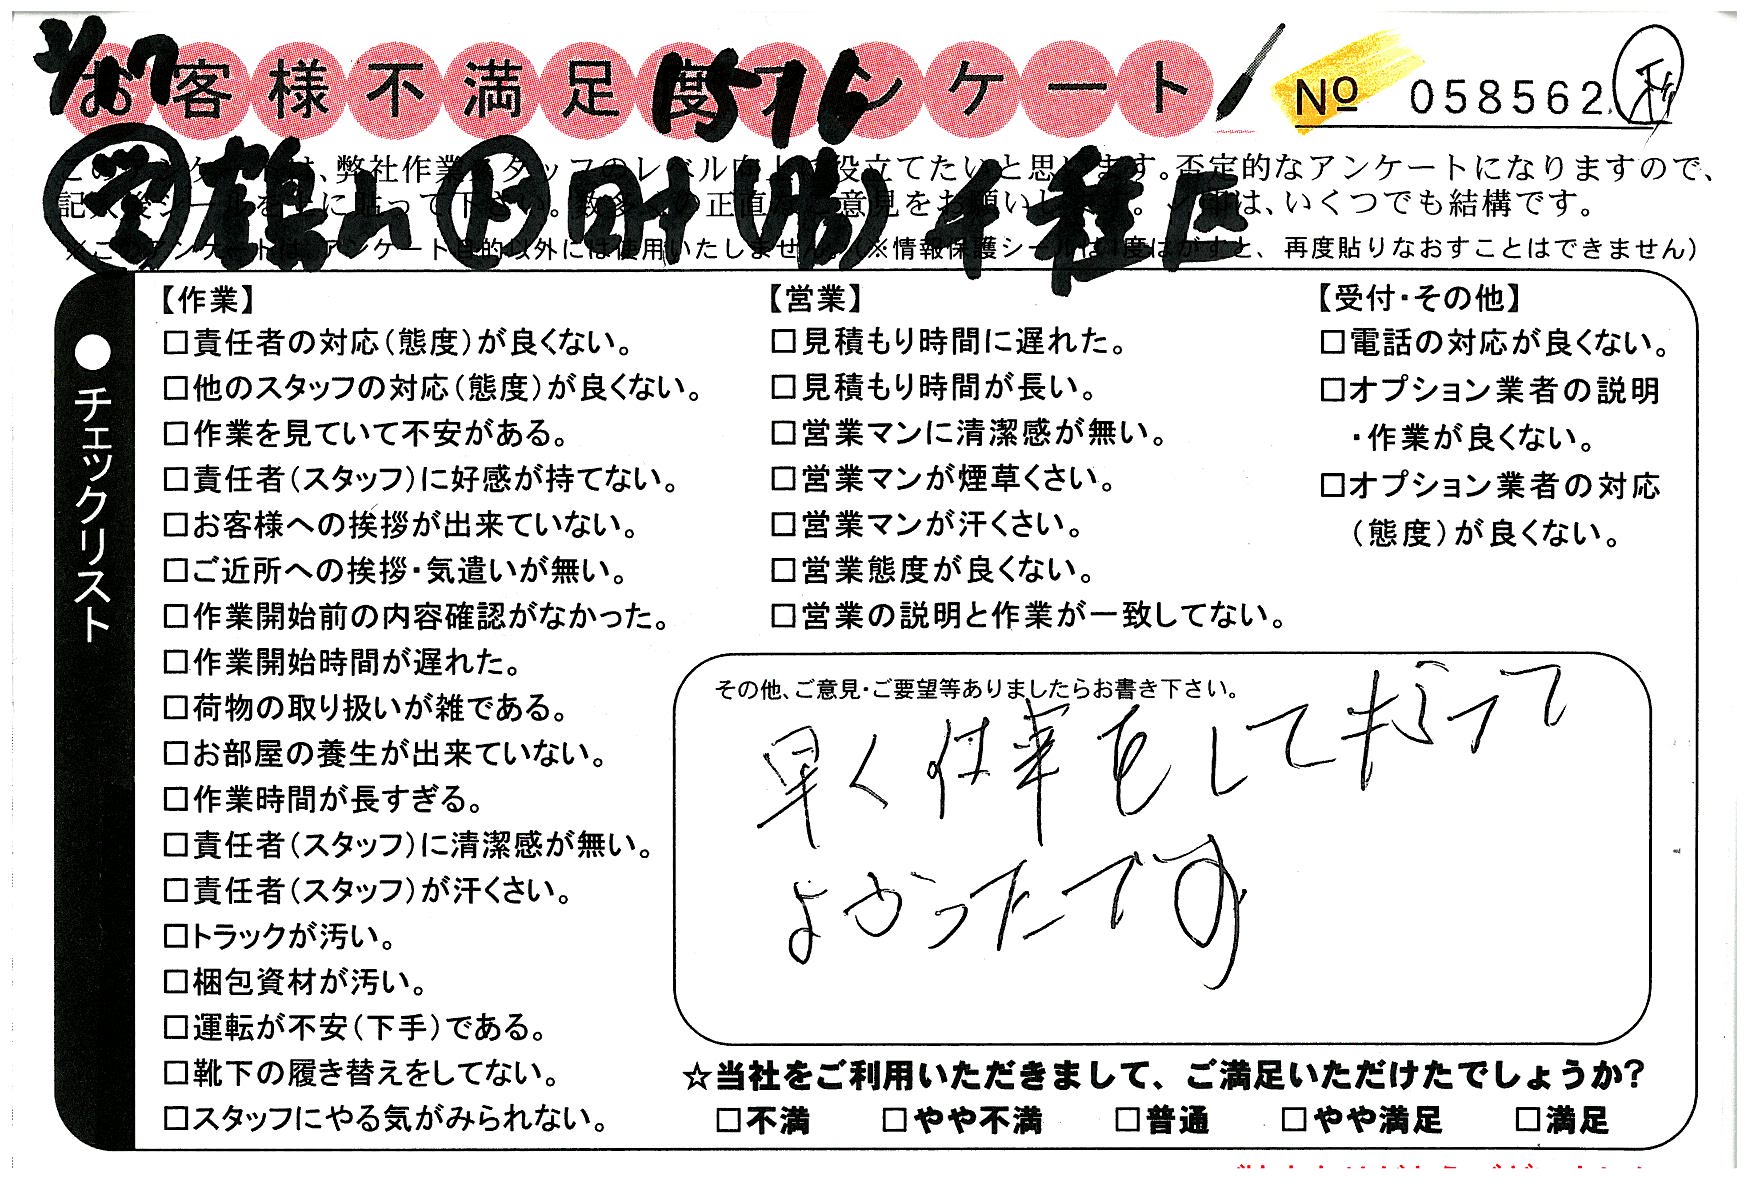 2/17
お客様不満足度アンケート
1576
No 058562
このアンケートは、弊社作業スタッフのレベル向上に役立てたいと思います。否定的なアンケートになりますので、
いくつでも結構です。
※このアンケートは、アンケート目的以外には使用いたしません。(※情報保護シールは1度はがすと、再度貼りなおすことはできません)
営 鶴山 千種区
●チェックリスト
【作業】
□責任者の対応(態度)が良くない。
□他のスタッフの対応(態度)が良くない。
□作業を見ていて不安がある。
□責任者(スタッフ)に好感が持てない。
□お客様への挨拶が出来ていない。
□ご近所への挨拶・気遣いが無い。
□作業開始前の内容確認がなかった。
□作業開始時間が遅れた。
□荷物の取り扱いが雑である。
□お部屋の養生が出来ていない。
□作業時間が長すぎる。
□責任者(スタッフ)に清潔感が無い。
□責任者(スタッフ)が汗くさい。
□トラックが汚い。
□梱包資材が汚い。
□運転が不安(下手)である。
□靴下の履き替えをしてない。
□スタッフにやる気がみられない。
【営業】
□見積もり時間に遅れた。
□見積もり時間が長い。
□営業マンに清潔感が無い。
□営業マンが煙草くさい。
□営業マンが汗くさい。
□営業態度が良くない。
□営業の説明と作業が一致してない。
【受付・その他】
□電話の対応が良くない。
□オプション業者の説明
・作業が良くない。
□オプション業者の対応
(態度)が良くない。
その他、ご意見・ご要望等ありましたらお書き下さい。
早く仕事をしてもらって
よかったです
☆当社をご利用いただきまして、ご満足いただけたでしょうか?
□不満 □やや不満 □普通 □やや満足 □満足